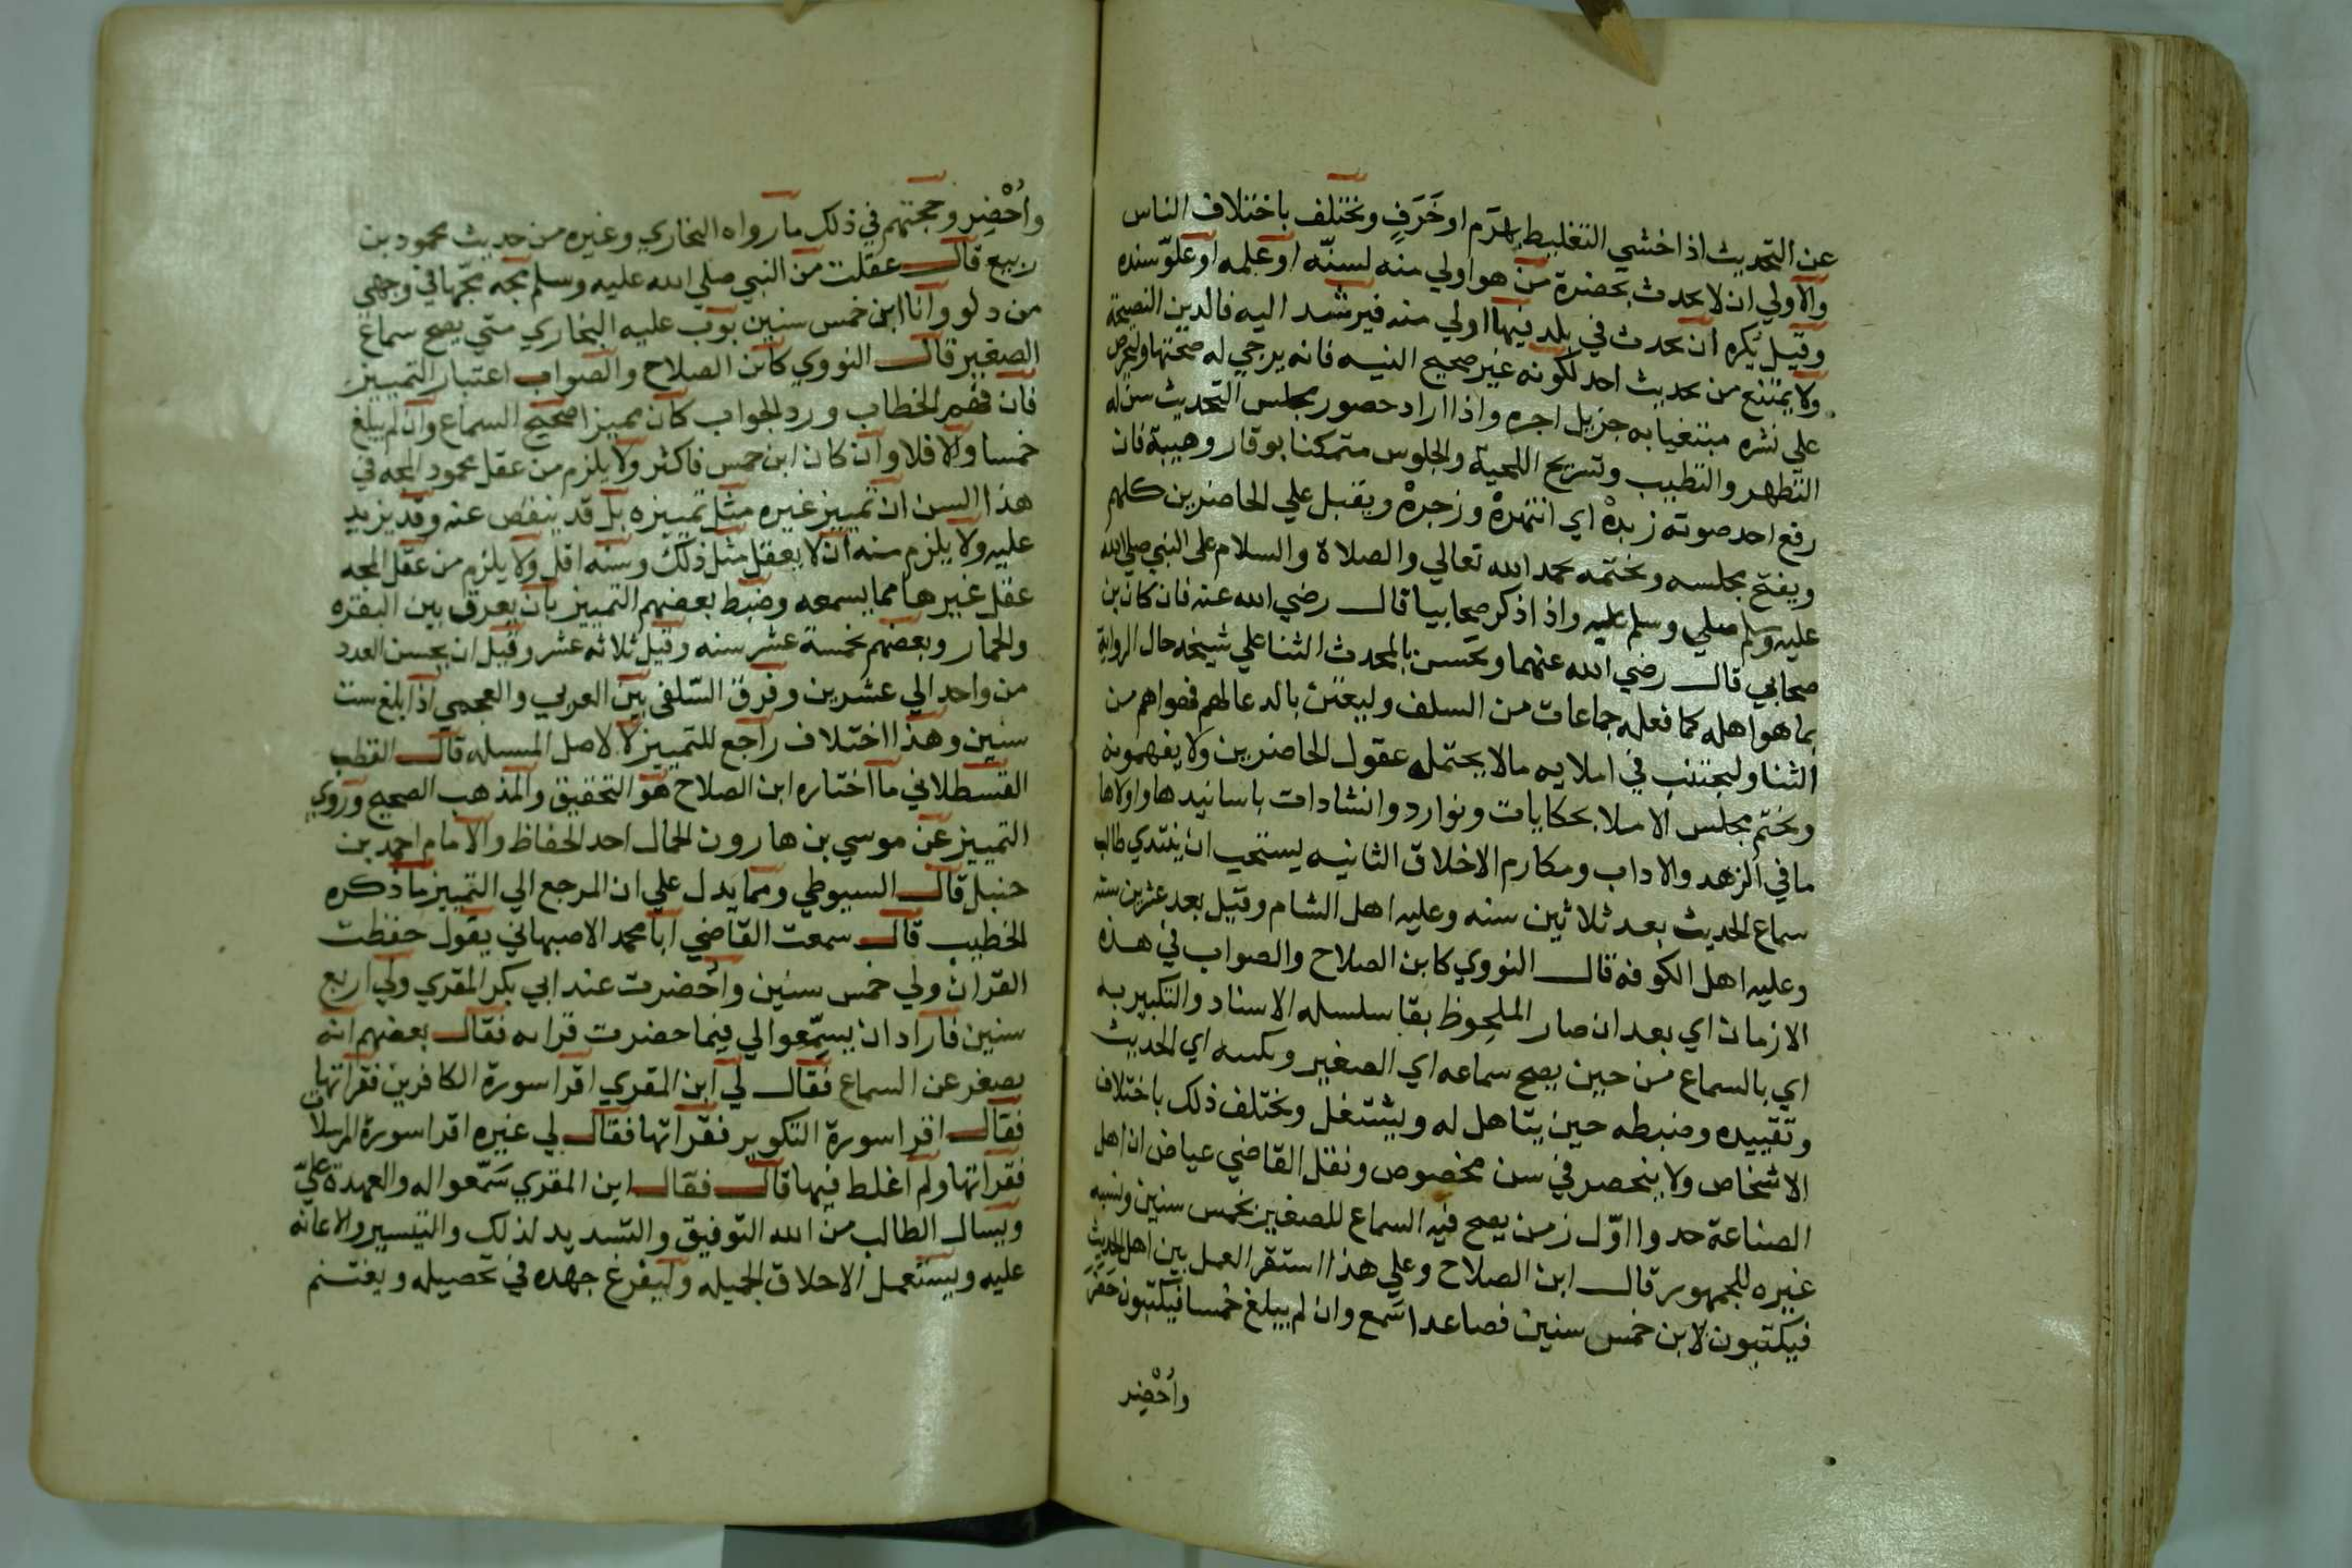 عن التحديث اذا خشي التغليط بهَرَم او خَرَفٍ ويختلف باختلاف الناس
والاولي ان لا يحدث بحضرة من هو اولي منه لسنّه او علمه او علوّ سنده
وقيل يُكره ان يحدث في بلد فيها اولي منه فيرشد اليه فالدين النصيحة
ولا يمتنع من تحديث احد لكونه غير صحيح النيه فانه يرجي له صحتها وليحرص
علي نشره مبتغيا به جزيل اجره واذا اراد حضور مجلس التحديث سن له
التطهر والتطيب وتسريح اللحية والجلوس متمكنا بوقار وهيبة فان
رفع احد صوته زبره اي انتهره وزجره ويقبل علي الحاضرين كلهم
ويفتح مجلسه ويختمه بحمد الله تعالي والصلاة والسلام على النبي صلي الله
عليه وسلم صلي وسلم عليه واذا ذكر صحابيا قال رضي الله عنه فان كان بن
صحابي قال رضي الله عنهما ويحسن بالمحدث الثنا علي شيخه حال الرواية
بما هو اهله كما فعله جماعات من السلف وليعتن بالدعا لهم فهو اهم من
الثنا وليجتنب في املايه مالا يحتمله عقول الحاضرين ولا يفهمونه
ويختم مجلس الاملا بحكايات ونوارد وانشادات باسانيدها واولاها
ما في الزهد والاداب ومكارم الاخلاق الثانيه يستحب ان يبتدي طالب
سماع الحديث بعد ثلاثين سنه وعليه اهل الشام وقيل بعد عشرين سنه
وعليه اهل الكوفه قال النووي كابن الصلاح والصواب في هذه
الازمان اي بعد ان صار الملحوظ بقا سلسله الاسناد والتكبير به
اي بالسماع من حين يصح سماعه اي الصغير وبكتبه اي الحديث
وتقييده وضبطه حين يتاهل له ويشتغل ويختلف ذلك باختلاف
الاشخاص ولا ينحصر في سن مخصوص ونقل القاضي عياض ان اهل
الصناعة حدوا اوّل زمن يصح فيه السماع للصغير بخمس سنين ونسبه
غيره للجمهور قال ابن الصلاح وعلي هذا استقر العمل بين اهل الحديث
فيكتبون لابن خمس سنين فصاعدا سَمع وان لم يبلغ خمسا فيكتبون حَضَر
واُحْضِر
واُحْضِر وحجتهم في ذلك ما رواه البخاري وغيره من حديث محمود بن
ربيع قال عقلت من النبي صلي الله عليه وسلم مجه مجّها في وجهي
من دلو وانا ابن خمس سنين بوّب عليه البخاري متي يصح سماع
الصغير قال النووي كابن الصلاح والصواب اعتبار التمييز
فان فهم الخطاب ورد الجواب كان مميزا صحيح السماع وان لم يبلغ
خمسا والا فلا وان كان ابن خمس فاكثر ولا يلزم من عقل محمود المجه في
هذا السن ان تمييز غيره مثل تمييزه بل قد ينقص عنه وقد يزيد
عليه ولا يلزم منه ان لا يعقل مثل ذلك وسنه اقل ولا يلزم من عقل المجه
عقل غيرها مما يسمعه وضبط بعضهم التمييز بان يعرق بين البقره
والحمار وبعضهم بخمسة عشر سنه وقيل ثلاثه عشر وقيل ان يحسن العدد
من واحد الي عشرين وفرق السّلفي بين العربي والعجمي اذا بلغ ست
سنين وهذا اختلاف راجع للتمييز لا لاصل المسله قال القطب
القسطلاني ما اختاره ابن الصلاح هو التحقيق والمذهب الصحيح وروي
التمييز عن موسي بن هارون الحمال احد الحفاظ والامام احمد بن
حنبل قال السيوطي ومما يدل علي ان المرجع الي التمييز ما ذكره
الخطيب قال سمعت القاضي ابا محمد الاصبهاني يقول حفظت
القران ولي خمس سنين واُحضرت عند ابي بكر المقري ولي اربع
سنين فاراد ان يسمّعوا لي فيما حضرت قراءه فقال بعضهم انه
يصغر عن السماع فقال لي ابن المقري اقرا سورة الكافرين فقراتها
فقال اقرا سورة التكوير فقراتها فقال لي غيره اقرا سورة المرسلات
فقراتها ولم اغلط فيها قال فقال ابن المقري سَمّعوا له والعهدة عليّ
ويسال الطالب من الله التوفيق والتسديد لذلك والتيسير والاعانه
عليه ويستعمل الاخلاق الجميله وليفرغ جهده في تحصيله ويغتنم